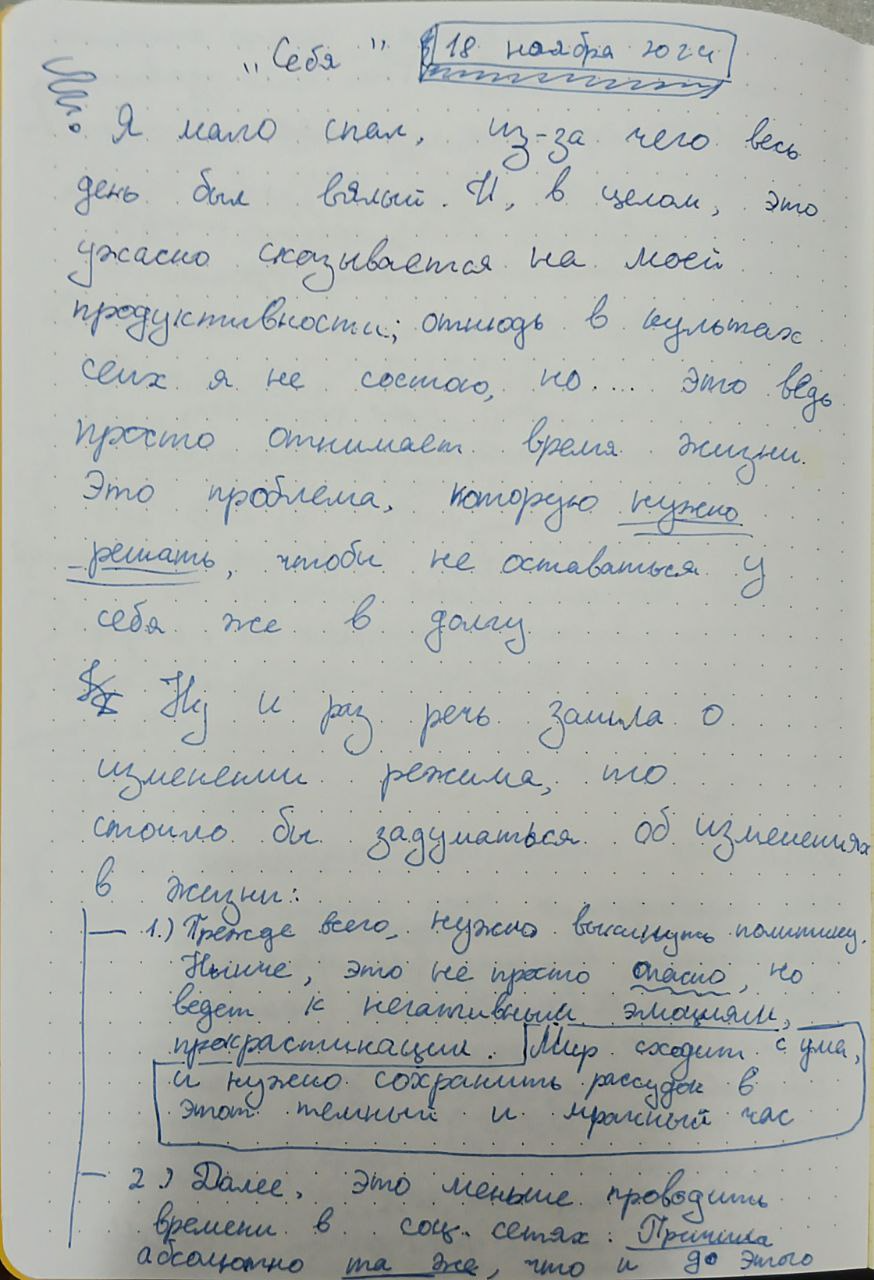 „Себя" 18 ноября 2024
Я мало спал, из-за чего весь
день был вялый. И, в целом, это
ужасно сказывается на моей
продуктивности; отнюдь в культах
сих я не состою, но.... это ведь
просто отнимает время жизни.
Это проблема, которую нужно
решать, чтобы не оставаться у
себя же в долгу
Ну и раз речь зашла о
изменении режима, то
стоило бы задуматься об изменениях
в жизни:
— 1.) Прежде всего, нужно выкинуть политику.
Нынче, это не просто опасно, но
ведет к негативным эмоциям,
прокрастинации. Мир сходит с ума,
и нужно сохранить рассудок в
этот темный и мрачный час
— 2.) Далее, это меньше проводить
времени в соц. сетях. Причина
абсолютно та же, что и до этого